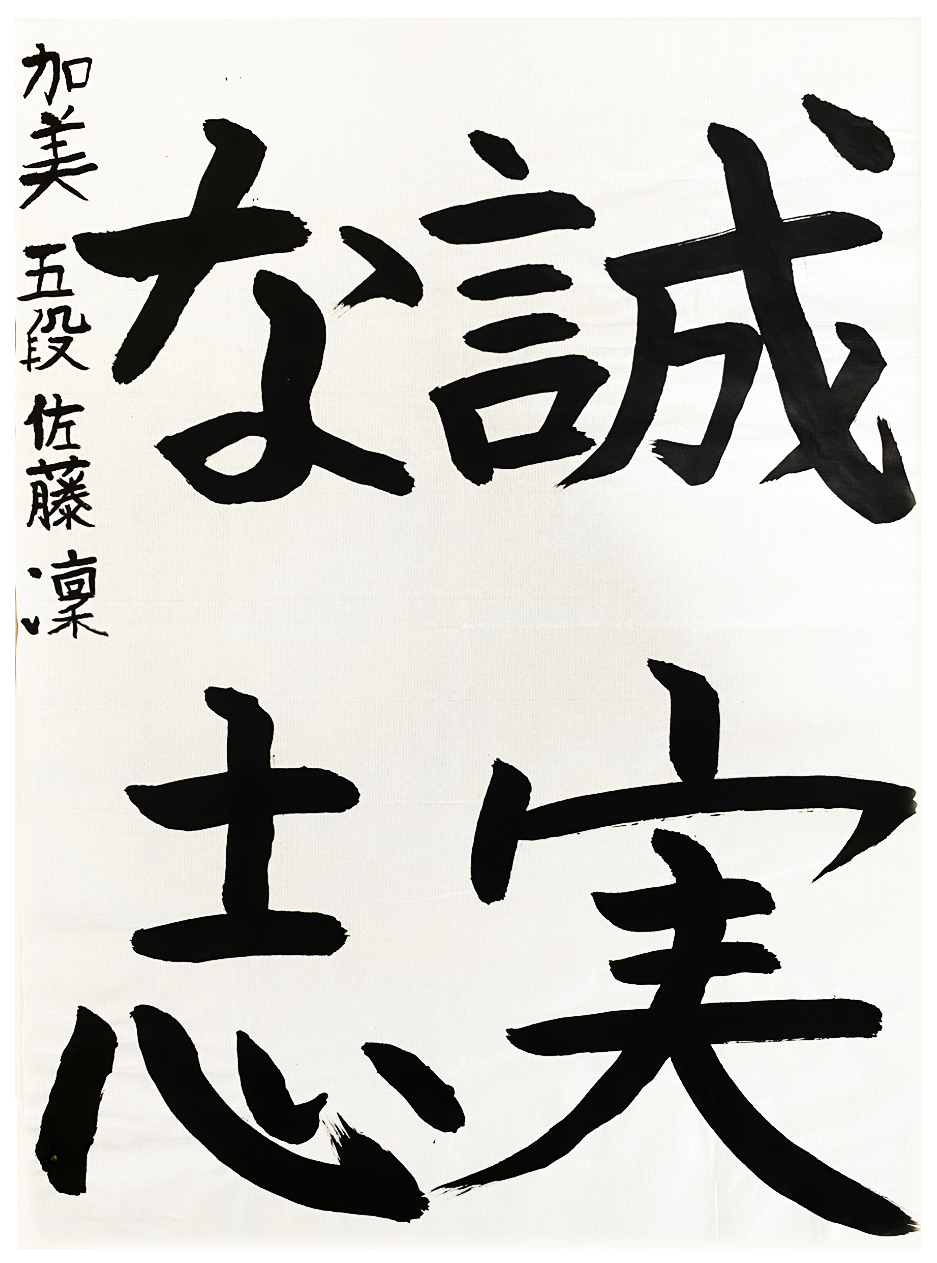 誠実
な志
加美 五段 佐藤凜